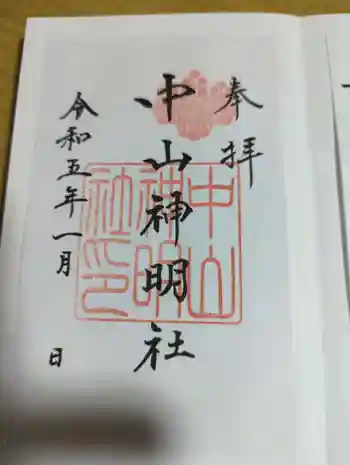 奉拝
中山神明社
中山神明社印
令和五年一月 日